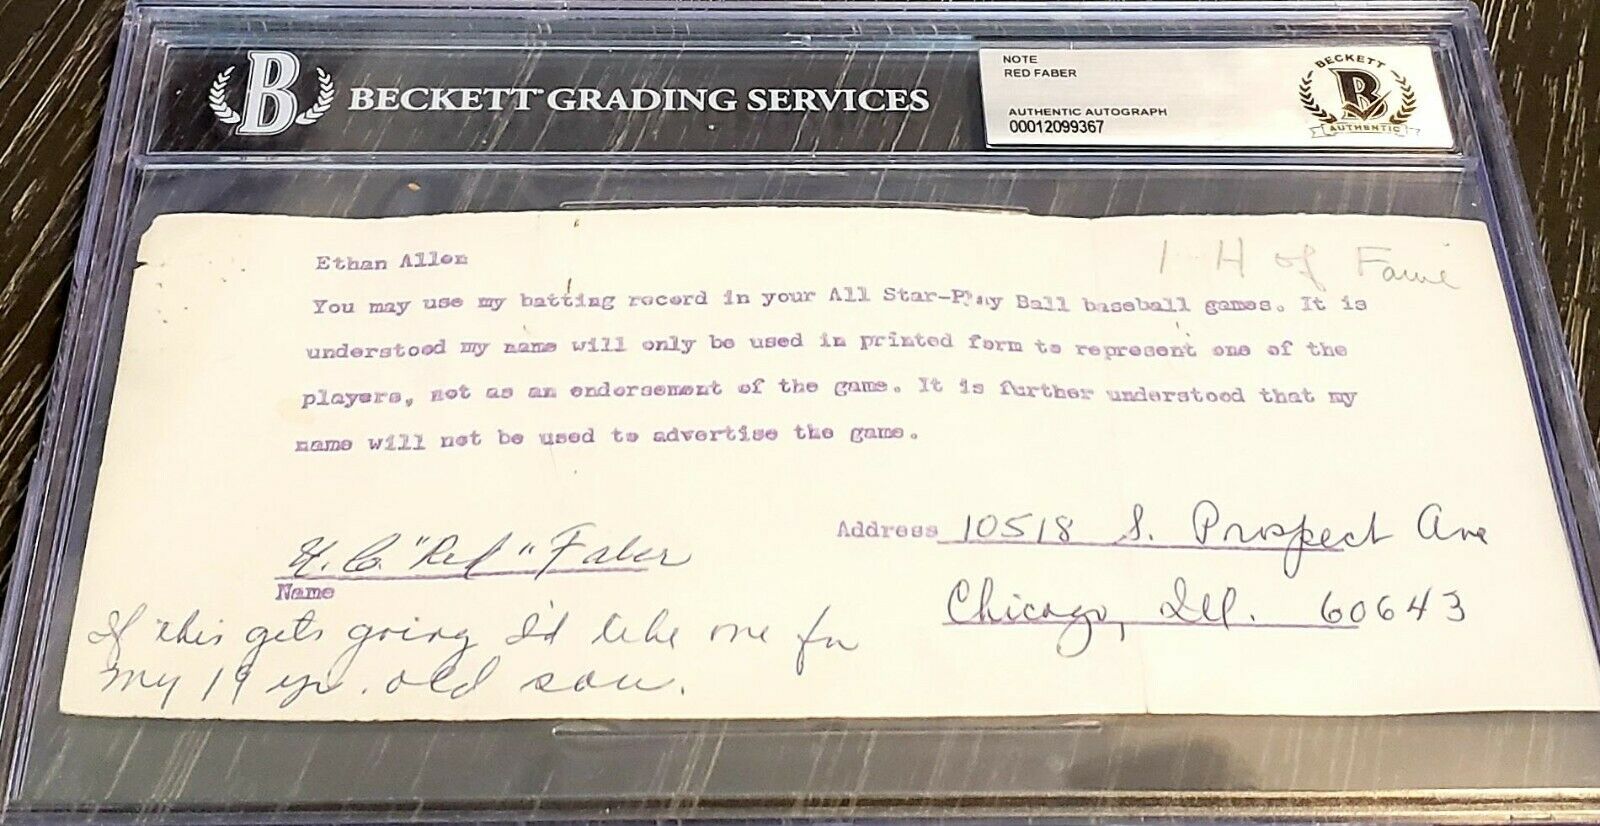 B BECKETT GRADING SERVICES
NOTE
RED FABER
AUTHENTIC AUTOGRAPH
00012099367
BECKETT
B
AUTHENTIC
1 H of Fame
Ethan Allen
You may use my batting record in your All Star-Play Ball baseball games. It is
understood my name will only be used in printed form to represent one of the
players, not as an endorsement of the game. It is further understood that my
name will not be used to advertise the game.
U. C. "Red" Faber
Name
Address 10518 S. Prospect Ave
Chicago, Ill. 60643
If this gets going I'd like one for
my 19 yr. old son.